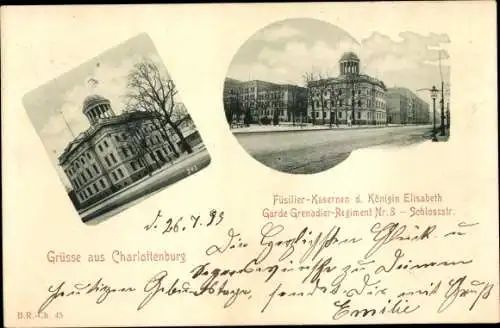 Füsilier-Kasernen d. Königin Elisabeth
Garde Grenadier-Regiment Nr. 3 – Schlossstr.
Grüsse aus Charlottenburg
d. 26.7.99
Die herzlichsten Glück- u.
Segenswünsche zu Deinem
heutigen Geburtstage, sendet Dir mit Gruß
Emilie
B.R.-Ch. 45